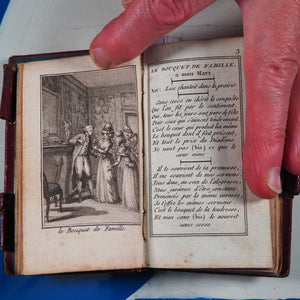 le Bouquet de Famille
3
LE BOUQUET DE FAMILLE,
a mon Mari.
Air: Lise chantoit dans la prairie
Sans cesse on chérit la conquête
Que l'on fit par le sentiment,
Oui, tous les jours sont jours de fête
Pour ceux qui s'aiment tendrement
C'est le cœur qui produit les
Le bouquet dont il fait présent,
Et tout le prix du Diadème
Ne vaut pas (bis) ce que le
cœur sent
Il te souvient de ta promesse,
Il me souvient de mes sermens
Tous deux, au sein de l'allegresse,
Nous sommes d'être constans
Prononcés par la même ivresse,
Je t'offre les mêmes sermens
C'est le bouquet de la tendresse,
Et mon cœur (bis) le nourrit
sans cesse